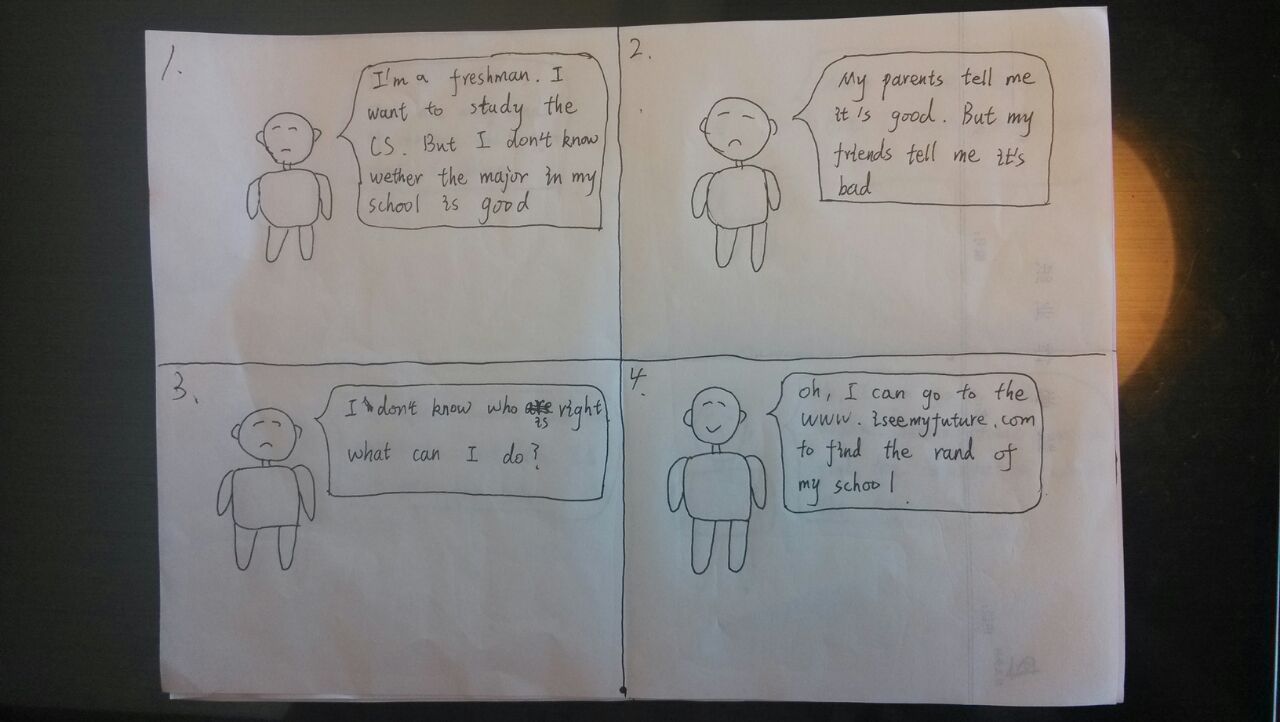 1.
I'm a freshman. I
want to study the
CS. But I don't know
wether the major in my
school is good
2.
My parents tell me
it's good. But my
friends tell me it's
bad
3.
I don't know who is right
what can I do?
4.
oh, I can go to the
www.iseemyfuture.com
to find the rand of
my school.